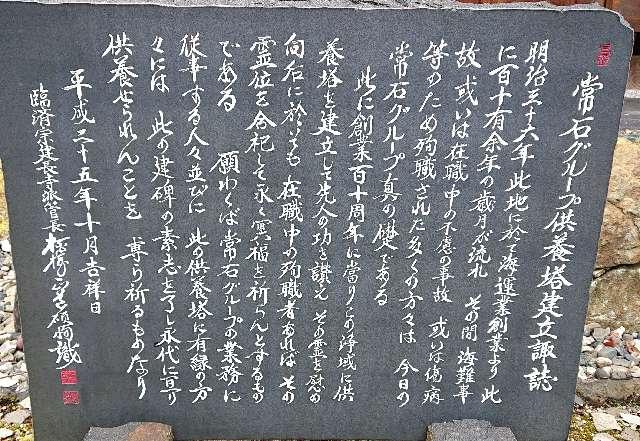 常石グループ供養塔建立諏誌
明治三十六年此地に於て海運業創業より此
に百十有余年の歳月が流れ その間 海難事
故 或いは在職中の不慮の事故 或いは傷病
等のため殉職された多くの方々は 今日の
常石グループ真の礎である
此に創業百十周年に當りこの浄域に供
養塔を建立して先人の功を讃え その霊を慰め
向后に於いても 在職中の殉職者あれば その
霊位を合祀して永く冥福を祈らんとするもの
である 願わくば常石グループの業務に
従事する人々並びに 此の供養塔に有縁の方
々には 此の建碑の素志を了し永代に亘り
供養せられんことを 専ら祈るものなり
平成二十五年十月吉祥日
臨済宗建長寺派管長
識